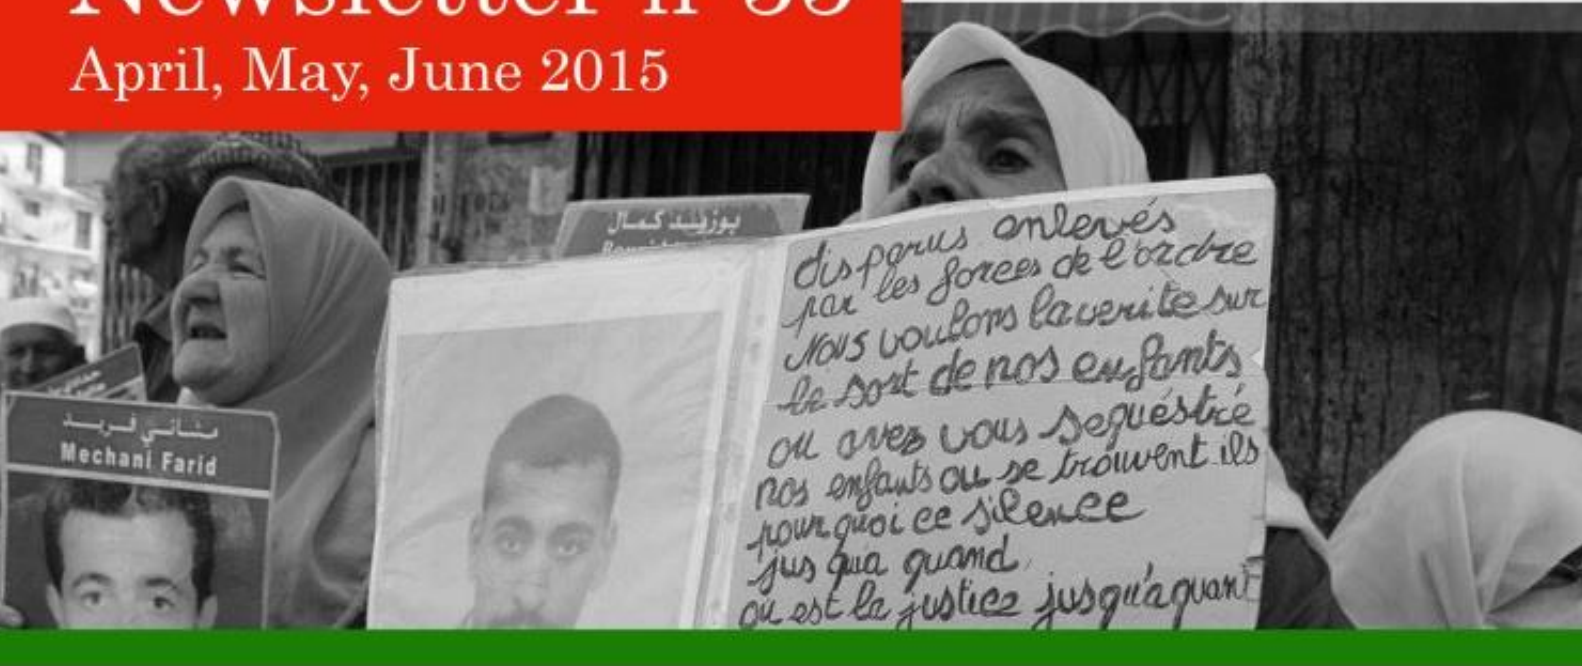 Newsletter n°33
April, May, June 2015
بوزيد كمال
مشاني فريد
Mechani Farid
disparus enlevés
par les forces de l'ordre
Nous voulons la verite sur
le sort de nos enfants
ou avez vous sequéstré
nos enfants ou se trouvent ils
pourquoi ce silence
jus qua quand
ou est la justice jusqu'a quant